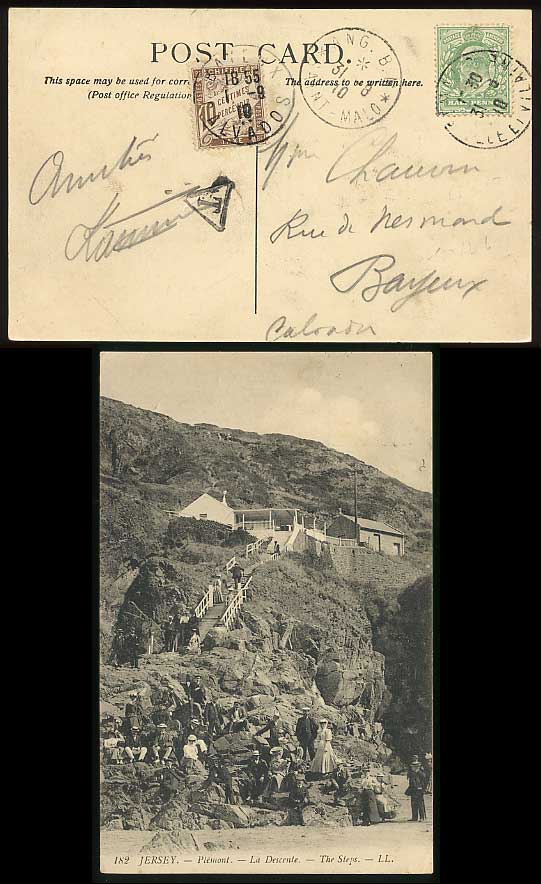 POST CARD.
This space may be used for corr
(Post office Regulation
The address to be written here.
18 55
1 - 9
10
BAYEUX
CALVADOS
10
CENTIMES
À PERCEVOIR
ANG. B
31
8
10
ST-MALO
HALF PENNY
30
10
T
Amitiés
Mme Chauvin
Rue de Nesmond
Bayeux
Calvados
182 JERSEY. — Plémont. — La Descente. — The Steps. — LL.